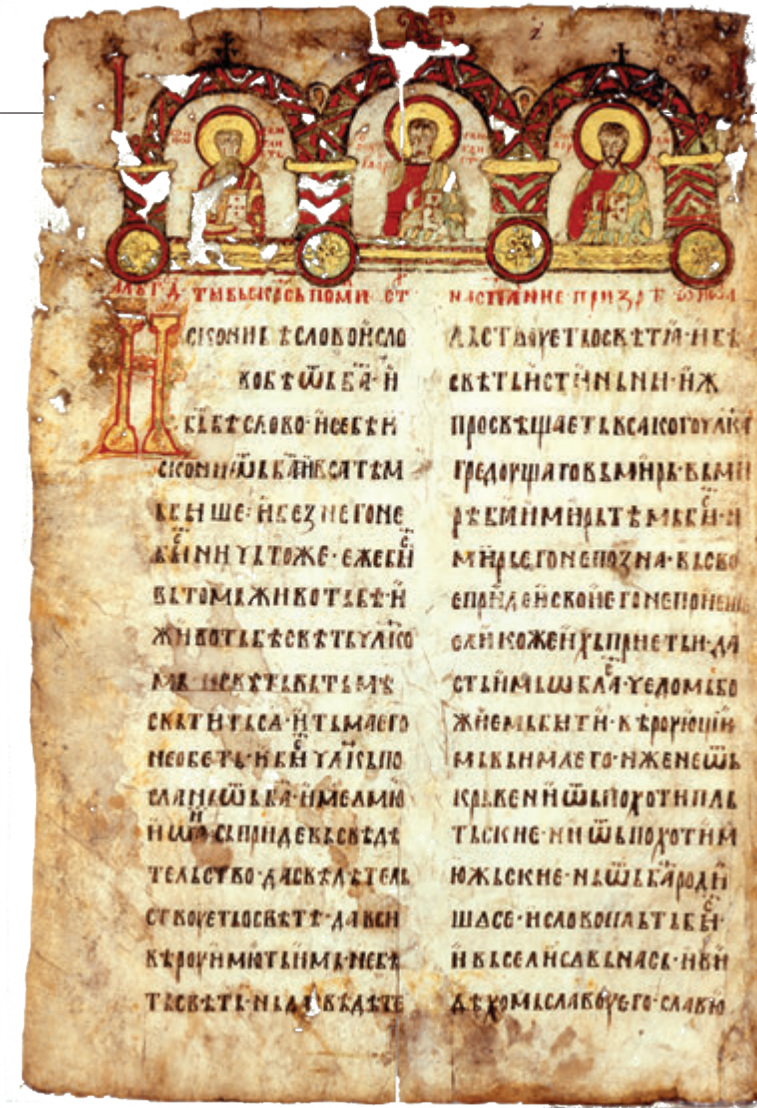 СКОНИБѢСЛОВОИСЛО
ВОБѢѾЬБА·И
БЬБѢСЛОВО·ИСЕБѢИ
СКОНИѾЬБАИВСАТѢМ
ЬБЫШЕ·ИБЕЗНЕГОНЕ
БЫНИЧЬТОЖЕ·ЕЖЕБЫ
ВЬТОМЬЖИВОТЬБѢ·И
ЖИВОТЬБѢСВѢТЬЧЛКО
МЬ ИСВѢТЬВЬТЬМѢ
СВѢТИТЬСА·ИТЬМАЕГО
НЕОБЕТЬ·ИБЫЧЛКЬПО
СЛАНЬѾЬБА·ИМЕАМЮ
ИѠА СЬПРИДЕВЬСВѢДѢ
ТЕЛЬСТВО·ДАСВѢДѢТЕЛЬ
СТВОУЕТЬОСВѢТѢ·ДАВСИ
ВѢРОУИМЮТЬИМЬ·НЕБѢ
ТЬСВѢТЬ·НЬДАСВѢДѢТЕ
ЛЬСТВОУЕТЬОСВѢТѢ·НБѢ
СВѢТЬИСТИНЬНЫ·ИЖ
ПРОСВѢЩАЕТЬВСАКОГОЧЛКА
ГРЕДОУЩАГОВЬМИРЬ·ВЬМИ
РѢБѢИМИРЬТѢМЬБЫ·И
МИРЬЕГОНЕПОЗНА·ВЬСВО
ЕПРИДЕИСВОИЕГОНЕПОИЕШЕ
ЕЛИКОЖЕИХЬПРИЕТЬИ·ДА
СТЬИМЬѠБЛА·ЧЕДОМЬБО
ЖИЕМЬБЫТИ·ВѢРОУЮЩИ
МЬВЬИМАЕГО·ИЖЕНЕѾЬ
КРЬВЕНИѾЬПОХОТИПЛЬ
ТЬСКИЕ·НИѾЬПОХОТИМ
ЮЖЬСКИЕ·НЬѾЬБАРОДИ
ШАСЕ·ИСЛОВОПЛЬТЬБЫ·
ИВЬСЕЛИСАВЬНАСЬ·ИВИ
ДѢХОМЬСЛАВОУЕГО·СЛАВЮ